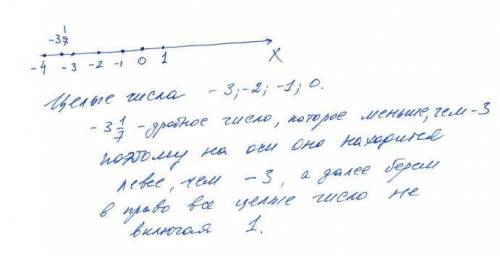 -3 1/7
-4 -3 -2 -1 0 1 X
Целые числа -3; -2; -1; 0.
-3 1/7 - дробное число, которое меньше, чем -3
поэтому на оси оно находится
левее, чем -3, а далее берем
в право все целые число не
включая 1.